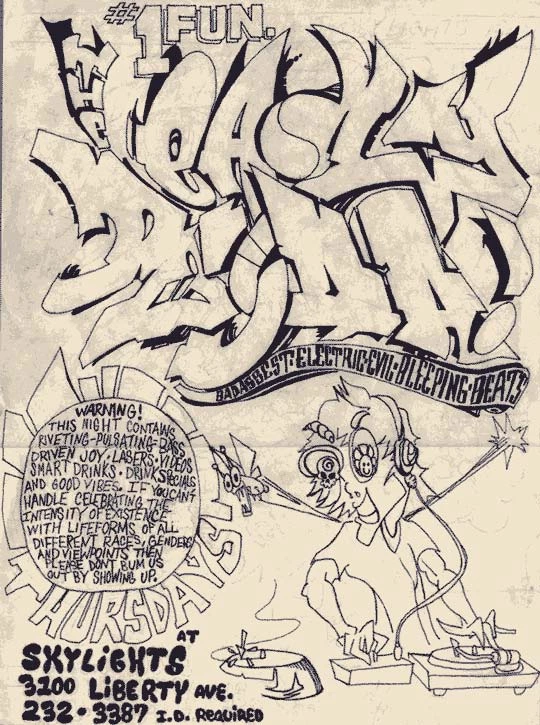 #1 FUN.
THE
RYDA
BADASSEST·ELECTRIC·EVIL·BLEEPING·BEATS
WARNING!
THIS NIGHT CONTAINS
RIVETING-PULSATING-BASS
DRIVEN JOY. LASERS. VIDEOS
SMART DRINKS. DRINK SPECIALS
AND GOOD VIBES. IF YOU CAN'T
HANDLE CELEBRATING THE
INTENSITY OF EXISTENCE
WITH LIFEFORMS OF ALL
DIFFERENT RACES, GENDERS
AND VIEWPOINTS THEN
PLEASE DON'T BUM US
OUT BY SHOWING UP.
THURSDAYS!
AT
SKYLIGHTS
3200 LIBERTY AVE.
232·3387 I.D. REQUIRED